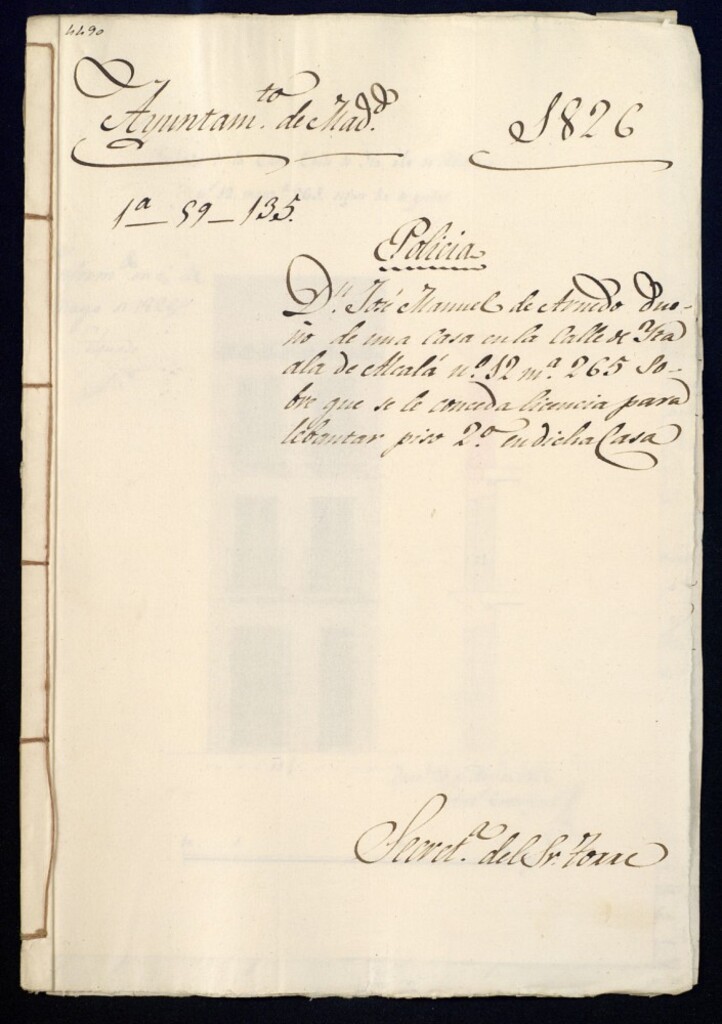 4490
Ayuntam.to de Madd.
1826
1a 59-135.
Policia
Dn. José Manuel de Arnedo Due-
ño de una Casa en la Calle de
de Alcalá nº. 12 mª. 265 So-
bre que se le conceda licencia para
lebantar piso 2º. en dicha Casa
Secret.a del Sr. Torre